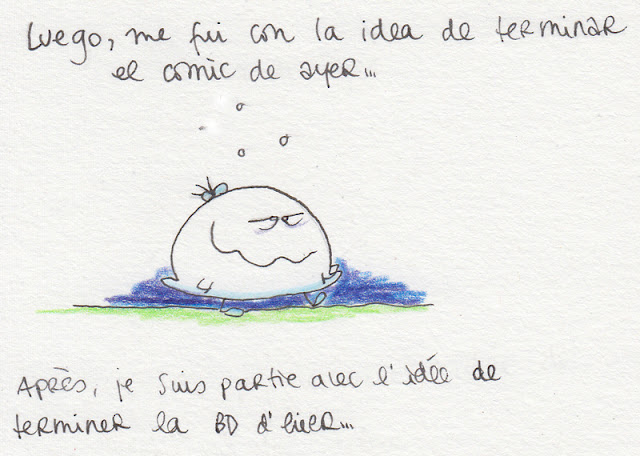 Luego, me fui con la idea de terminar
el comic de ayer...
Après, je suis partie avec l'idée de
terminer la BD d'hier...